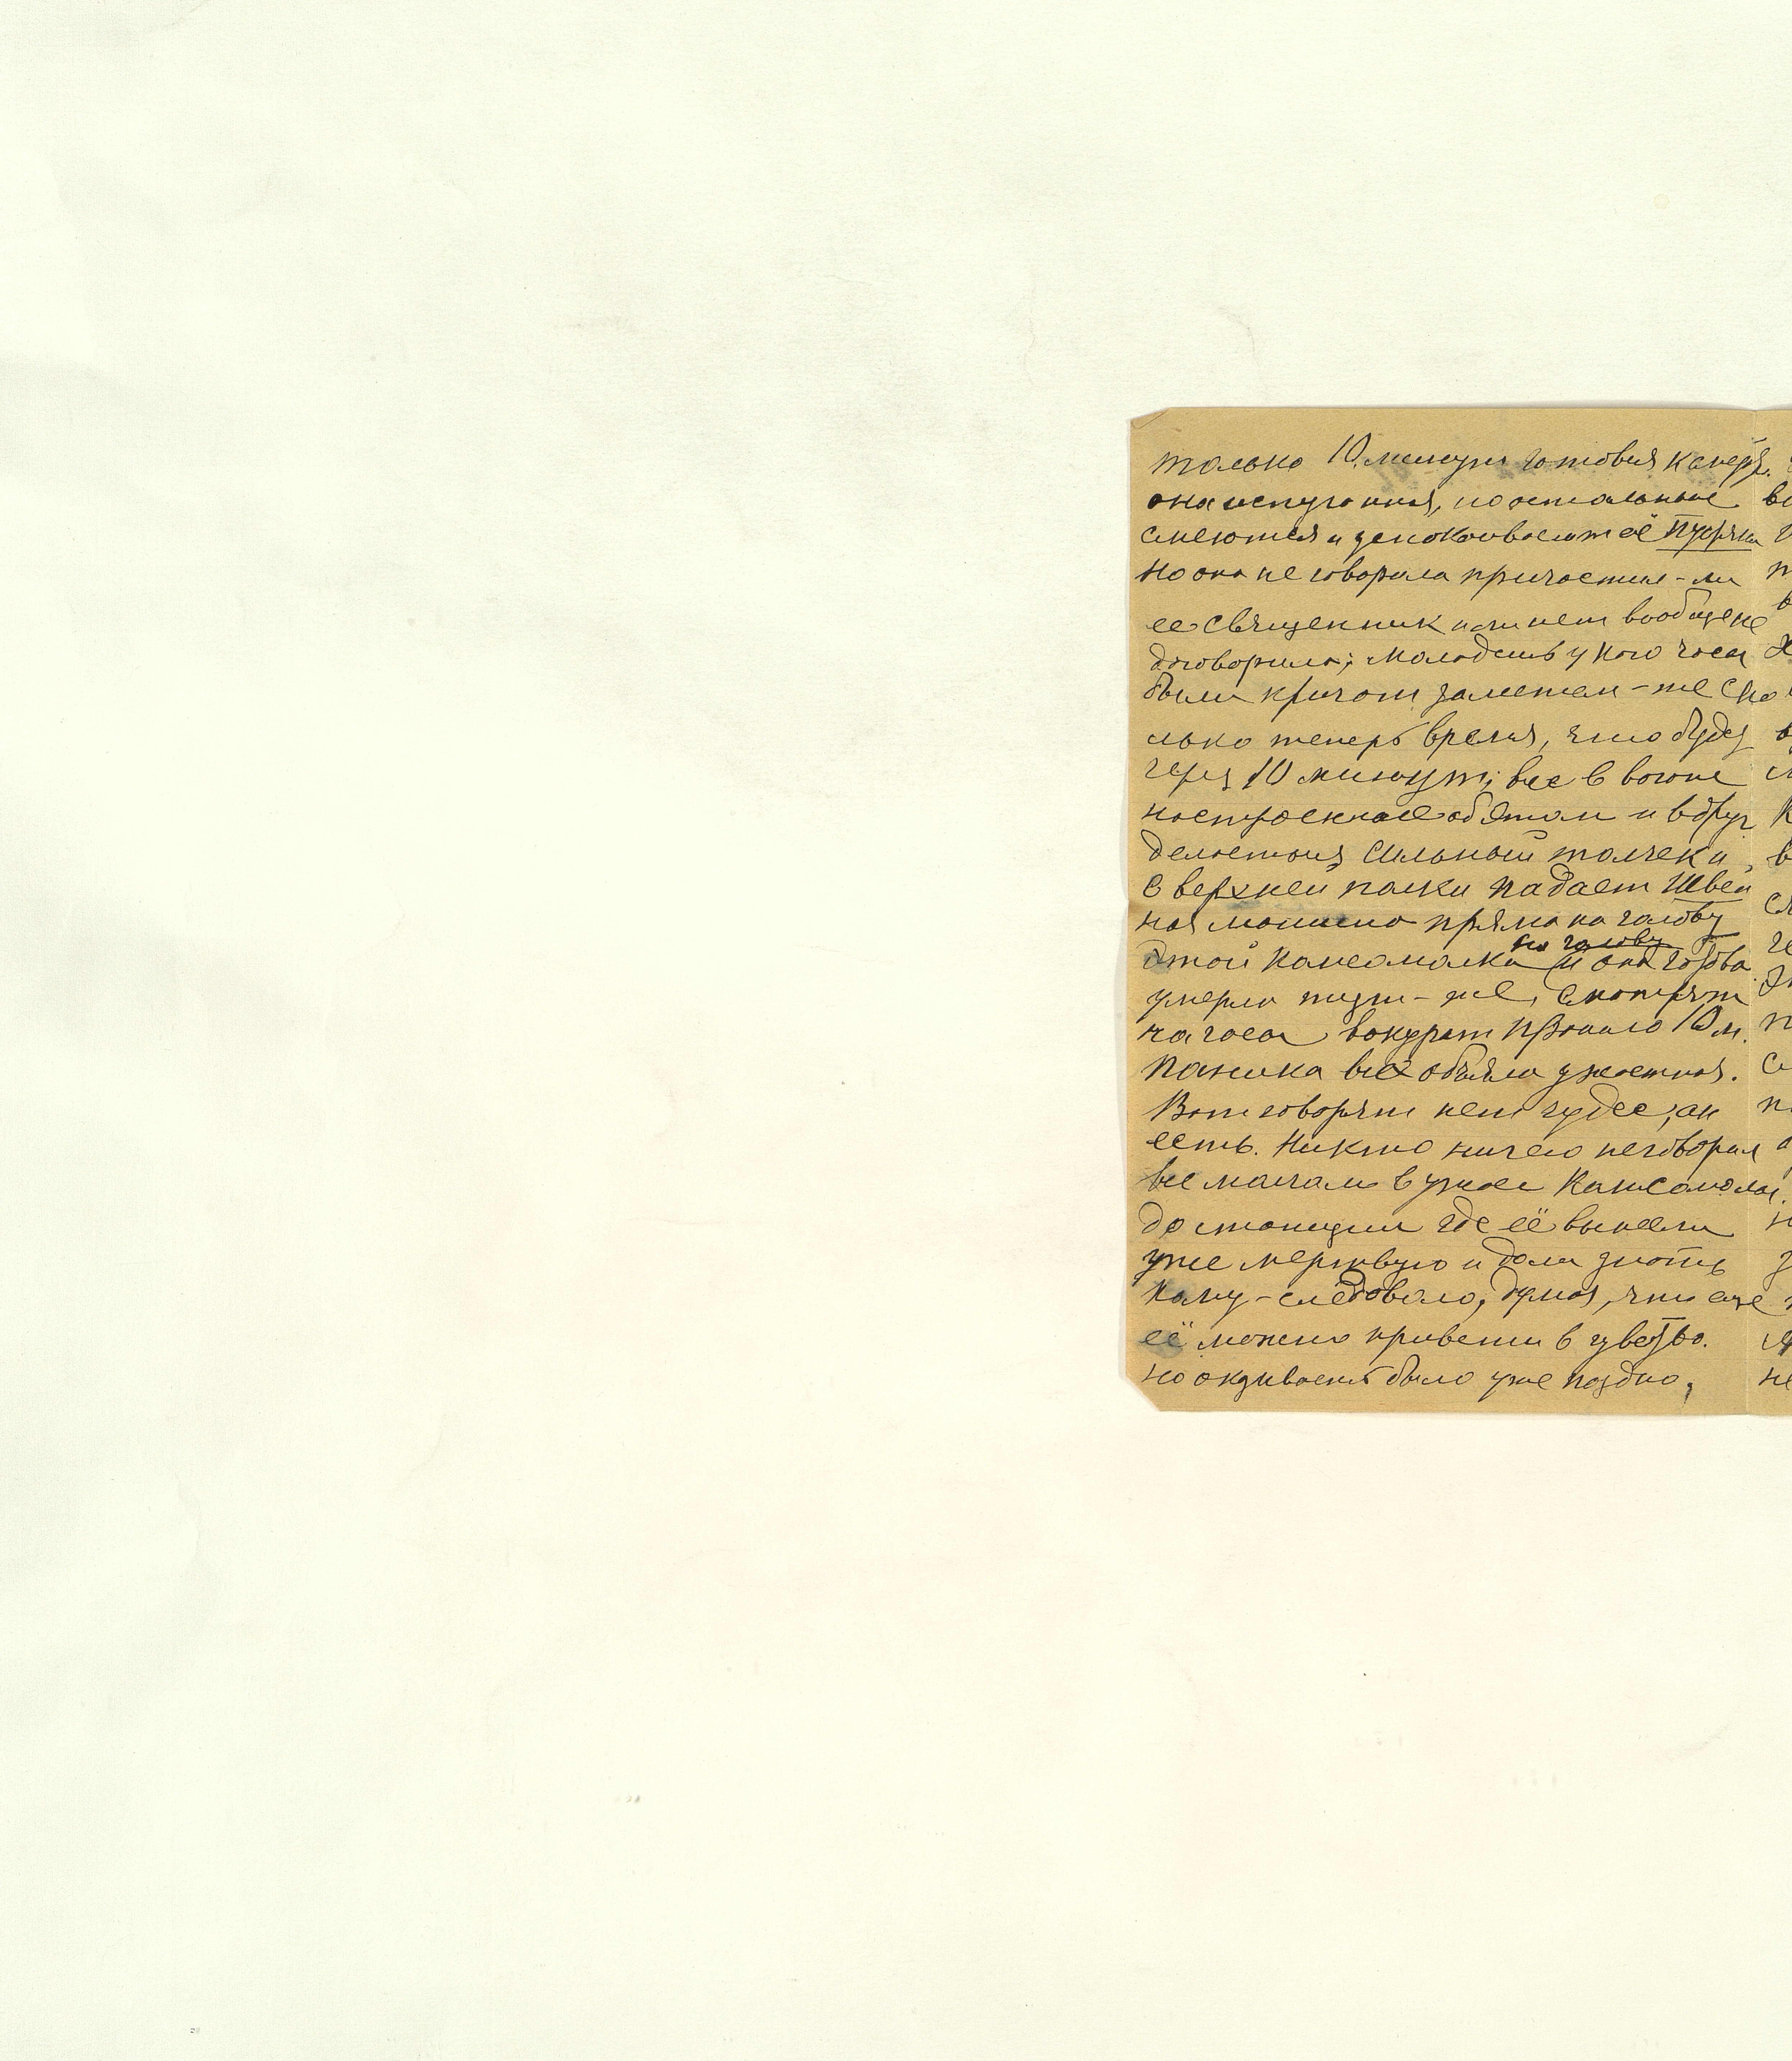 только 10. минут готовься камерт.
она испуганная, но остальные
смеются и успокоивают её Пустяки
но она не говорила причастил-ли
ее священник или нет вообще не
договорила; молодежь у кого часы
были кричат заметем-же ско
лько теперь время, что будет
через 10 минут; все в вагоне
настроение обятом и вдруг
делается сильный толчек и
с верхней полки падает швей
ная машина прямо на голову
этой комсомолки на голову и она готова
умерла тут-же, смотрят
на часы вокурат прошло 10 м.
Паника все обьяла ужастная.
Вот говорят нет чудес, ан
есть. Никто ничего не говорил
все молчали в ужасе
до станции где её вынесли
уже мертвую и дали знать
кому-следовало, думая, что еще
её можно привести в чувство.
но оказывается было уже поздно,